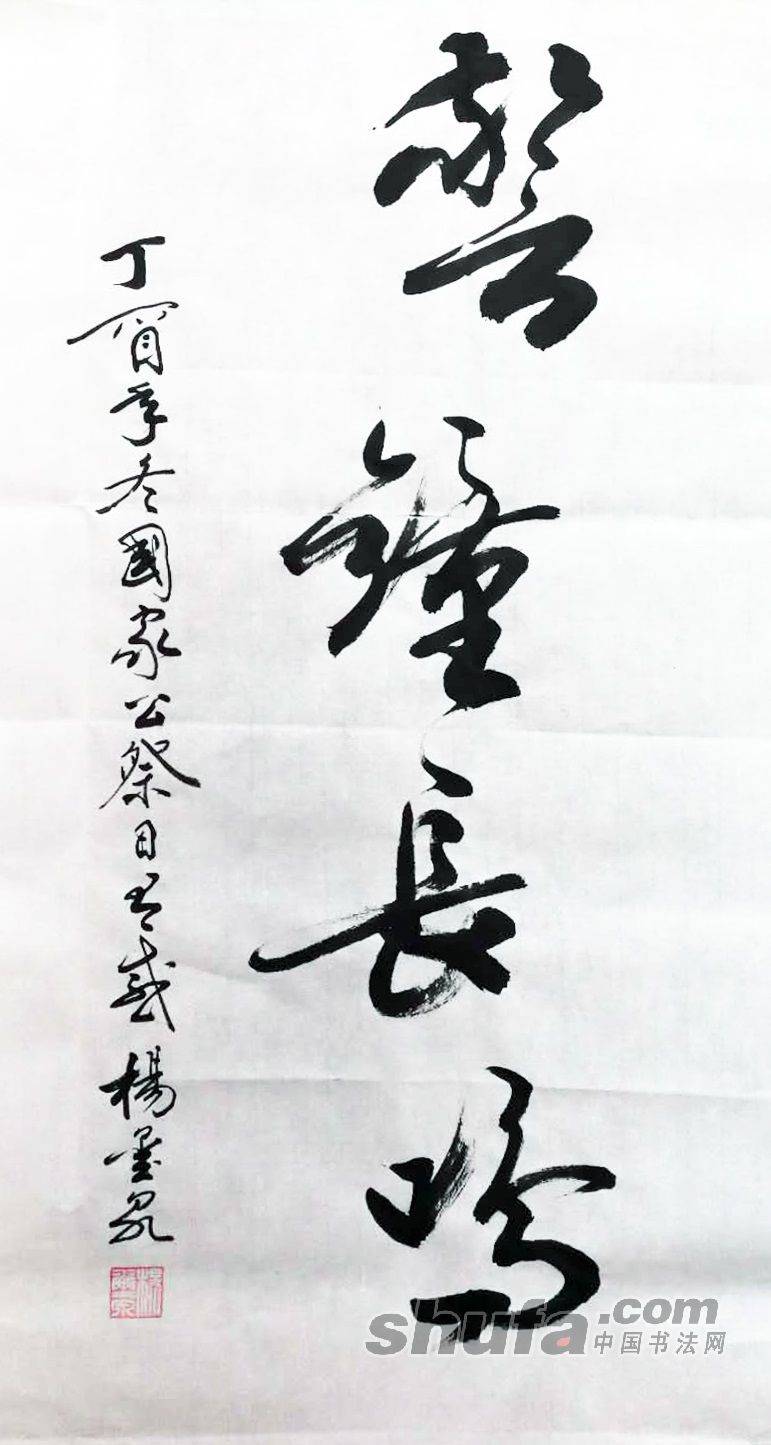 警鐘長鳴
丁酉年冬國家公祭日有感 楊墨泉
shufa.com
中国书法网